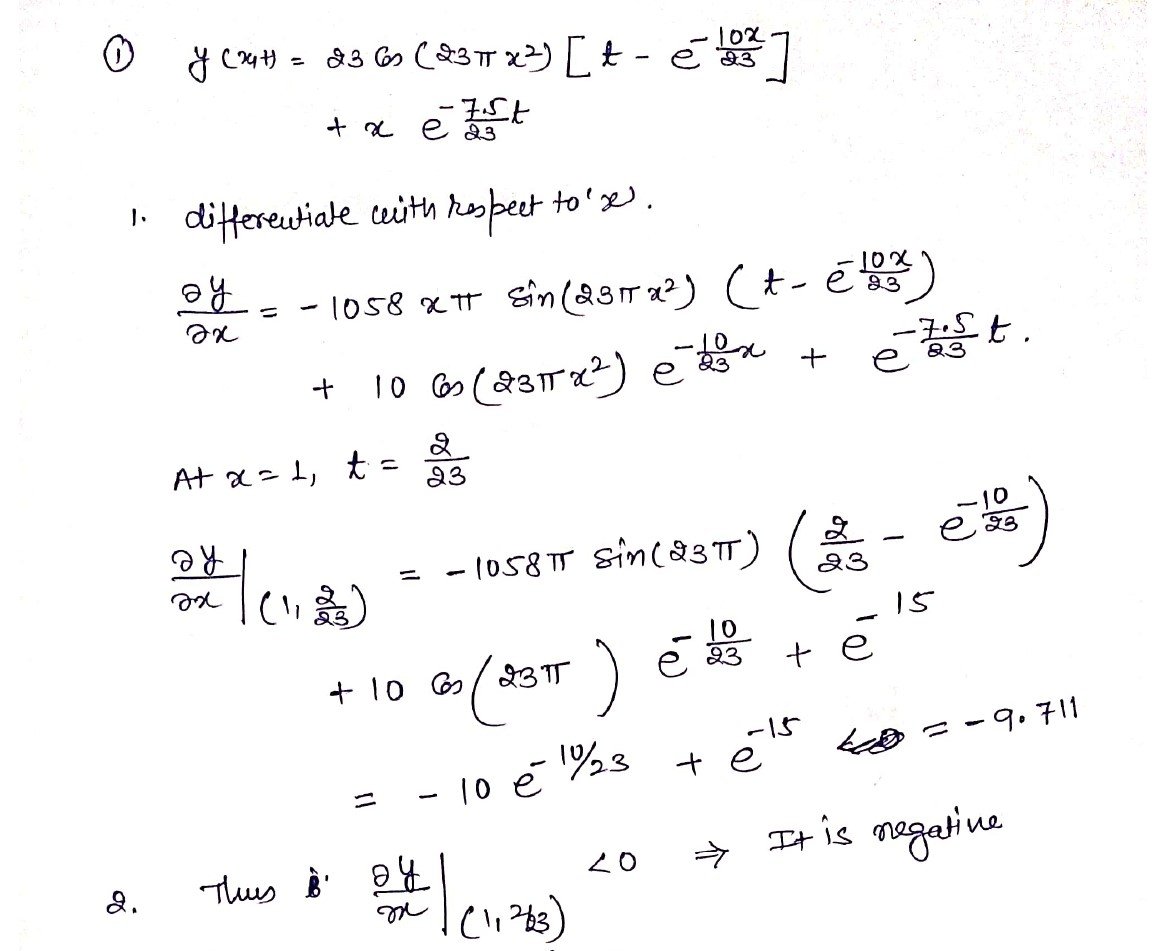 ① y(x,t) = 23 Cos (23π x²) [t - e^{-10x/23}]
+ x e^{-7.5/23 t}
1. differentiate with respect to 'x'.
∂y/∂x = - 1058 x π sin(23π x²) (t - e^{-10x/23})
+ 10 Cos(23π x²) e^{-10/23 x} + e^{-7.5/23 t}.
At x = 1, t = 2/23
∂y/∂x |(1, 2/23) = - 1058 π sin(23π) (2/23 - e^{-10/23})
+ 10 Cos(23π) e^{-10/23} + e^{-15}
= - 10 e^{-10/23} + e^{-15} = - 9.711
2. Thus ∂y/∂x |(1, 2/23) < 0 ⇒ It is negative